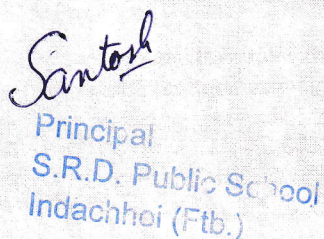 Santosh
Principal
S.R.D. Public School
Indachhoi (Ftb.)